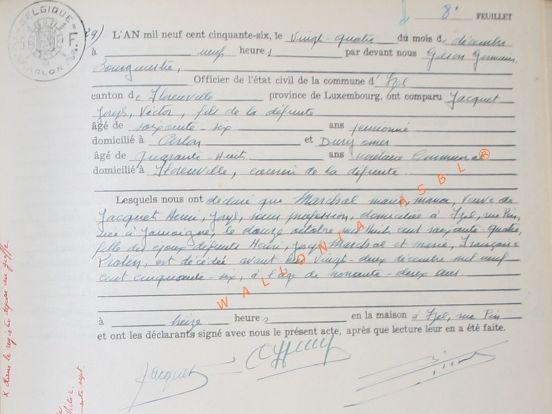 8e FEUILLET
BELGIQUE
ARLON
29) L'AN mil neuf cent cinquante-six, le vingt-quatre du mois de décembre
à neuf heures par devant nous Gilson Germain,
Bourgmestre,
Officier de l'état civil de la commune d'Izel
canton de Florenville province de Luxembourg, ont comparu Jacquet
Joseph, Victor, fils de la défunte
âgé de soixante-six ans pensionné
domicilié à Arlon et Omer
âgé de quarante-huit ans secrétaire communal
domicilié à Florenville, cousin de la défunte
Lesquels nous ont déclaré que Marchal Marie, veuve de
Jacquet Henri, Joseph, sans profession, domiciliée à Izel, rue Pin,
née à Jamoigne, le douze octobre mil huit cent soixante-quatre,
fille des époux défunts Henri, Joseph Marchal et Marie, Françoise
est décédée avant hier vingt-deux décembre mil neuf
cent cinquante-six, à l'âge de nonante-deux ans
à treize heures en la maison à Izel, rue Pin
et ont les déclarants signé avec nous le présent acte, après que lecture leur en a été faite.
Jacquet
WALLONIA ASBL ®